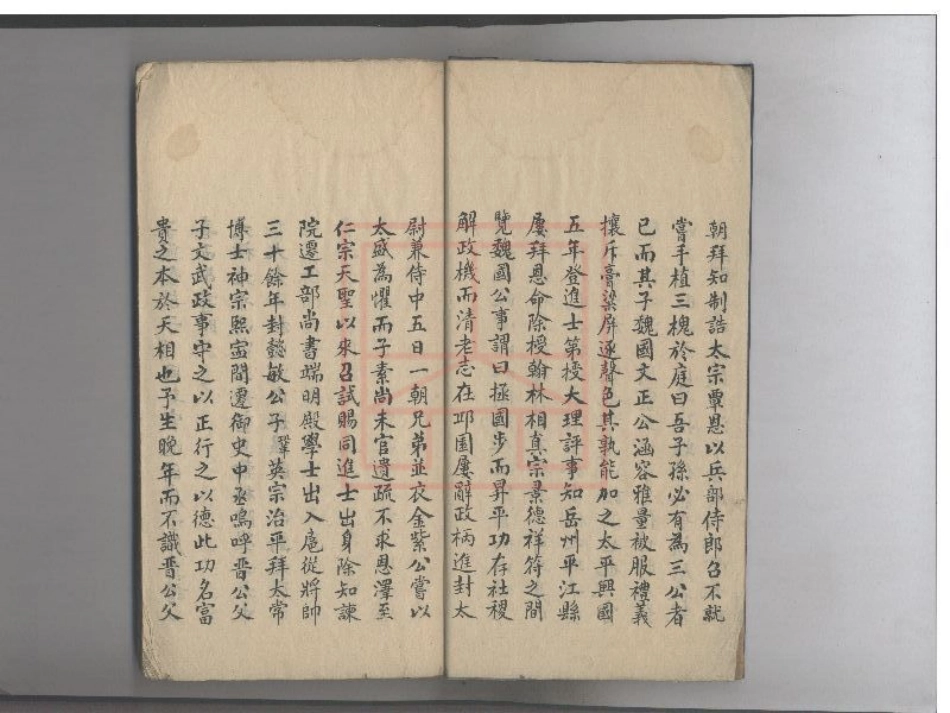 朝拜知制誥太宗覃恩以兵部侍郎召不就
嘗手植三槐於庭曰吾子孫必有為三公者
已而其子魏國文正公涵容雅量被服禮義
攘斥膏粱屏逐聲色其孰能加之太平興國
五年登進士第授大理評事知岳州平江縣
屢拜恩命除授翰林相真宗景德祥符之間
覽魏國公事謂曰拯國步而昇平功存社稷
解政機而清老志在邱園屢辭政柄進封太
尉兼侍中五日一朝兄弟並衣金紫公嘗以
太盛為懼而子素尚未官遺疏不求恩澤至
仁宗天聖以來召試賜同進士出身除知諫
院遷工部尚書端明殿學士出入扈從將帥
三十餘年封懿敏公子鞏英宗治平拜太常
博士神宗熙寧間遷御史中丞嗚呼晋公父
子文武政事守之以正行之以德此功名富
貴之本於天相也予生晚年而不識晋公父